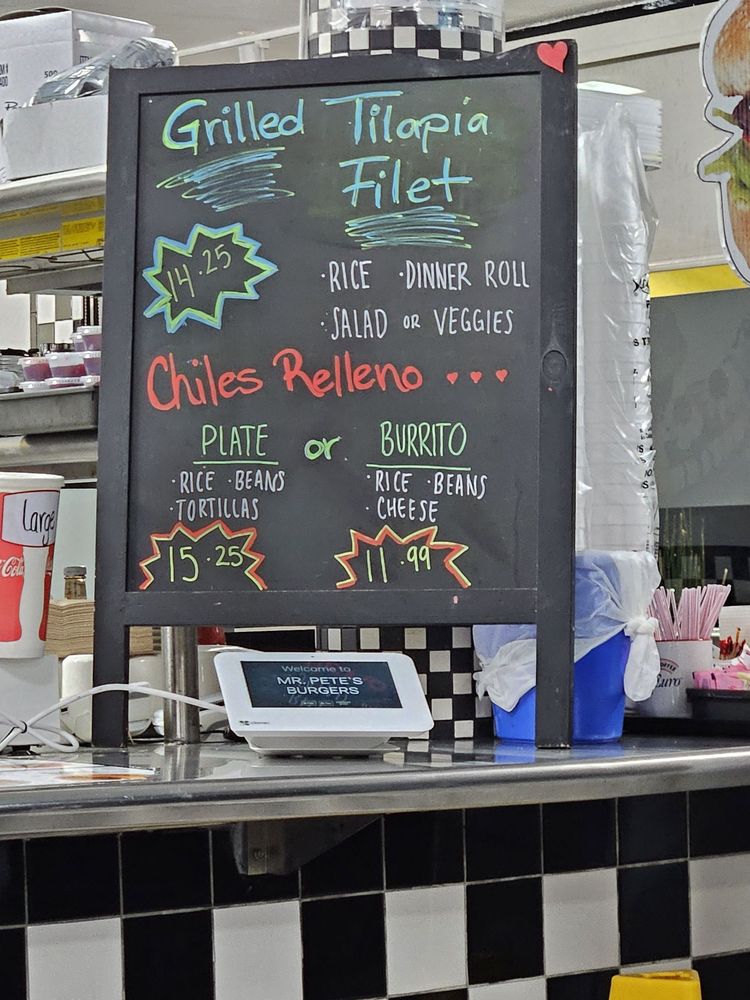 Grilled Tilapia
Filet
14.25
·RICE ·DINNER ROLL
·SALAD OR VEGGIES
Chiles Relleno
PLATE or BURRITO
·RICE ·BEANS
·TORTILLAS
15.25
·RICE ·BEANS
·CHEESE
11.99
Large
Coca
Welcome to
MR. PETE'S
BURGERS
Euro